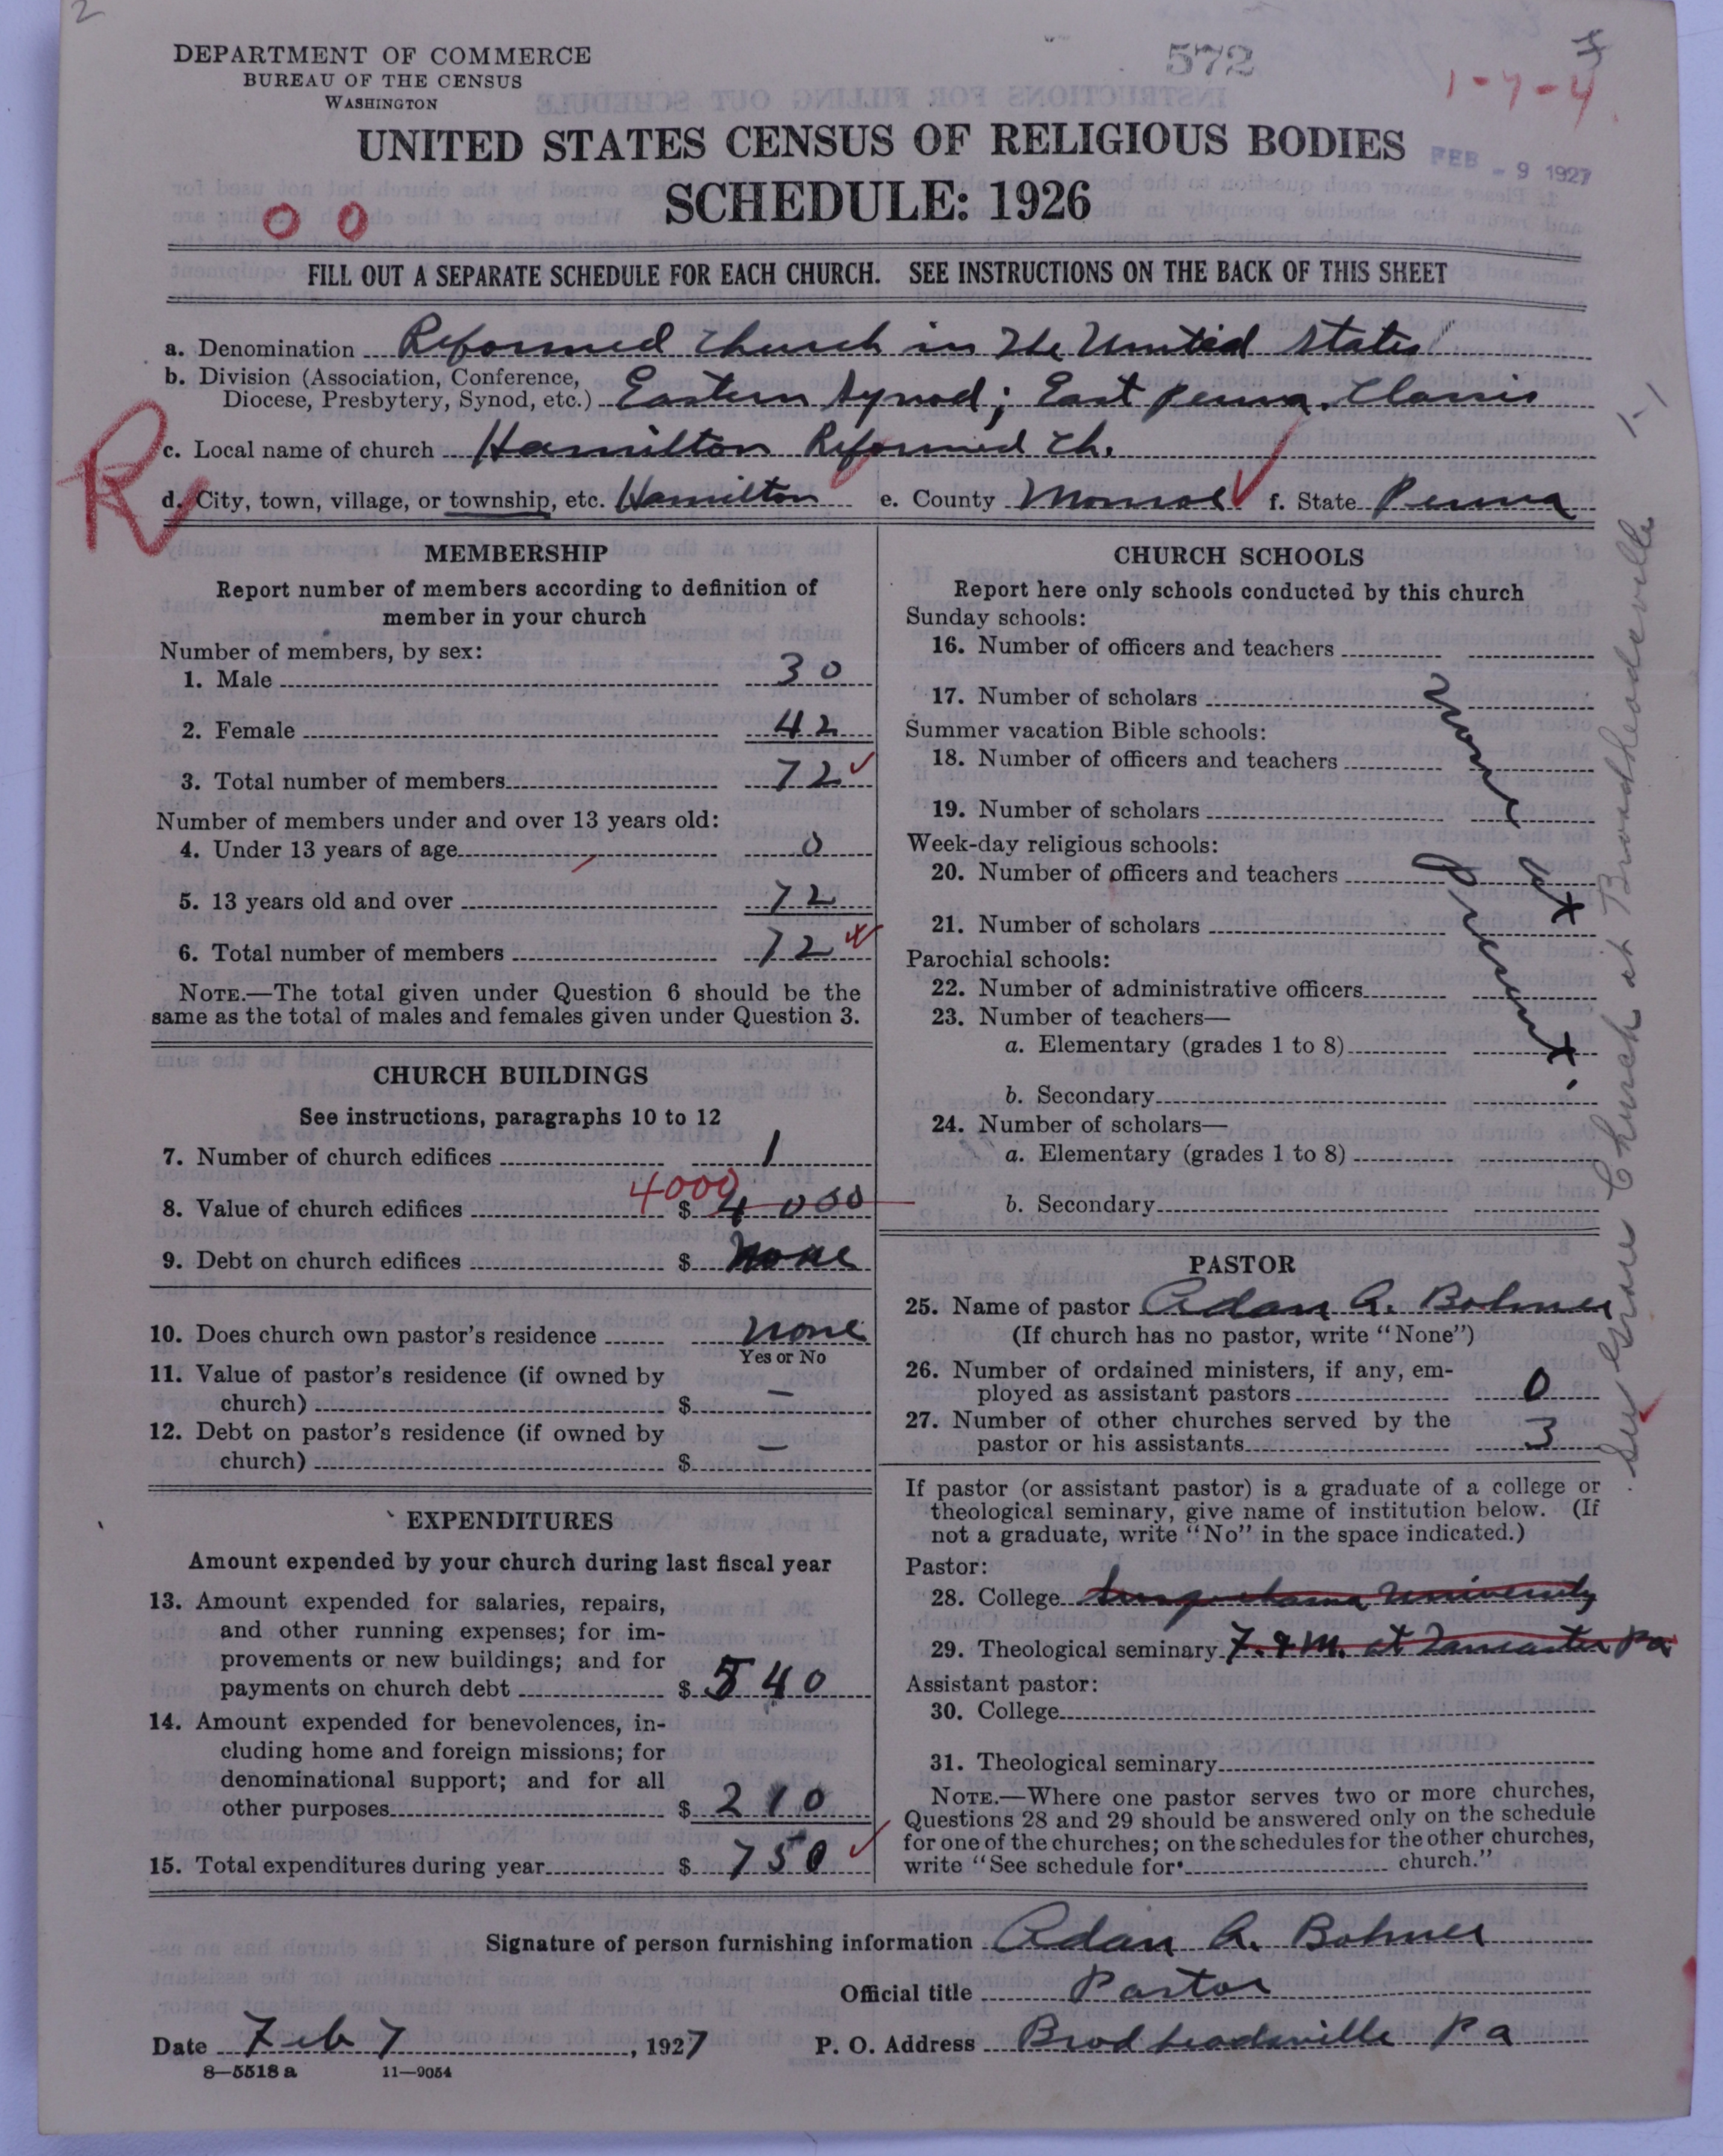 2
DEPARTMENT OF COMMERCE
BUREAU OF THE CENSUS
WASHINGTON
572
1-7-4
FEB - 9 1927
UNITED STATES CENSUS OF RELIGIOUS BODIES
SCHEDULE: 1926
0 0
FILL OUT A SEPARATE SCHEDULE FOR EACH CHURCH. SEE INSTRUCTIONS ON THE BACK OF THIS SHEET
a. Denomination Reformed Church in The United States
b. Division (Association, Conference, Diocese, Presbytery, Synod, etc.) Eastern Synod; East Penna. Classis
c. Local name of church Hamilton Reformed Ch.
R
d. City, town, village, or township, etc. Hamilton e. County Monroe f. State Penna
1-1
MEMBERSHIP
Report number of members according to definition of
member in your church
Number of members, by sex:
1. Male 30
2. Female 42
3. Total number of members 72
Number of members under and over 13 years old:
4. Under 13 years of age 0
5. 13 years old and over 72
6. Total number of members 72
NOTE.—The total given under Question 6 should be the
same as the total of males and females given under Question 3.
CHURCH BUILDINGS
See instructions, paragraphs 10 to 12
7. Number of church edifices 1
8. Value of church edifices 4000 $ 4000
9. Debt on church edifices $ None
10. Does church own pastor's residence none
Yes or No
11. Value of pastor's residence (if owned by
church) $ –
12. Debt on pastor's residence (if owned by
church) $ –
EXPENDITURES
Amount expended by your church during last fiscal year
13. Amount expended for salaries, repairs,
and other running expenses; for im-
provements or new buildings; and for
payments on church debt $ 540
14. Amount expended for benevolences, in-
cluding home and foreign missions; for
denominational support; and for all
other purposes $ 210
15. Total expenditures during year $ 750
CHURCH SCHOOLS
Report here only schools conducted by this church
Sunday schools:
16. Number of officers and teachers
17. Number of scholars
Summer vacation Bible schools:
18. Number of officers and teachers
19. Number of scholars
Week-day religious schools:
20. Number of officers and teachers
21. Number of scholars
Parochial schools:
22. Number of administrative officers
23. Number of teachers—
a. Elementary (grades 1 to 8)
b. Secondary
24. Number of scholars—
a. Elementary (grades 1 to 8)
b. Secondary
None at
Present.
PASTOR
25. Name of pastor Adam A. Bohner
(If church has no pastor, write "None")
26. Number of ordained ministers, if any, em-
ployed as assistant pastors 0
27. Number of other churches served by the
pastor or his assistants 3
If pastor (or assistant pastor) is a graduate of a college or
theological seminary, give name of institution below. (If
not a graduate, write "No" in the space indicated.)
Pastor:
28. College Susquehanna University
29. Theological seminary F. & M. at Lancaster Pa
Assistant pastor:
30. College
31. Theological seminary
NOTE.—Where one pastor serves two or more churches,
Questions 28 and 29 should be answered only on the schedule
for one of the churches; on the schedules for the other churches,
write "See schedule for church."
See Grace Church at Brodheadsville
Signature of person furnishing information Adam A. Bohner
Official title Pastor
Date Feb 7, 1927 P. O. Address Brodheadsville Pa
8—5518 a 11—9054